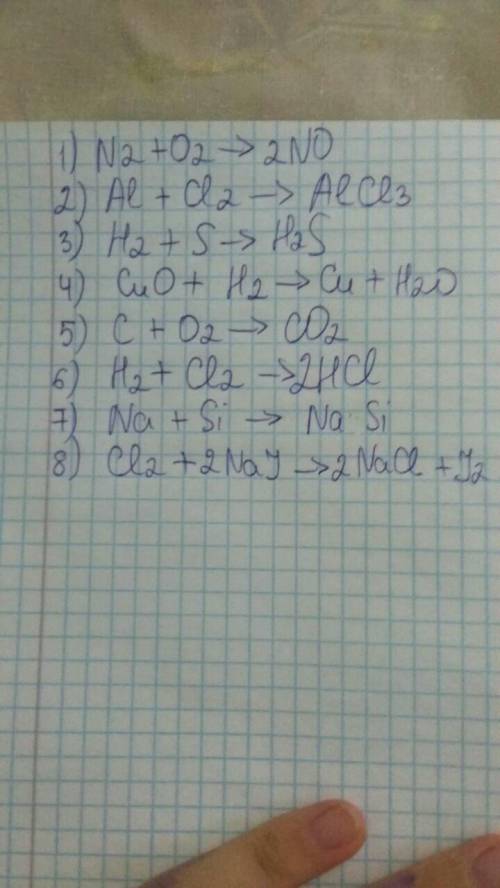 1) N2 + O2 → 2NO
2) Al + Cl2 → AlCl3
3) H2 + S → H2S
4) CuO + H2 → Cu + H2O
5) C + O2 → CO2
6) H2 + Cl2 → 2HCl
7) Na + Si → Na Si
8) Cl2 + 2NaJ → 2NaCl + J2